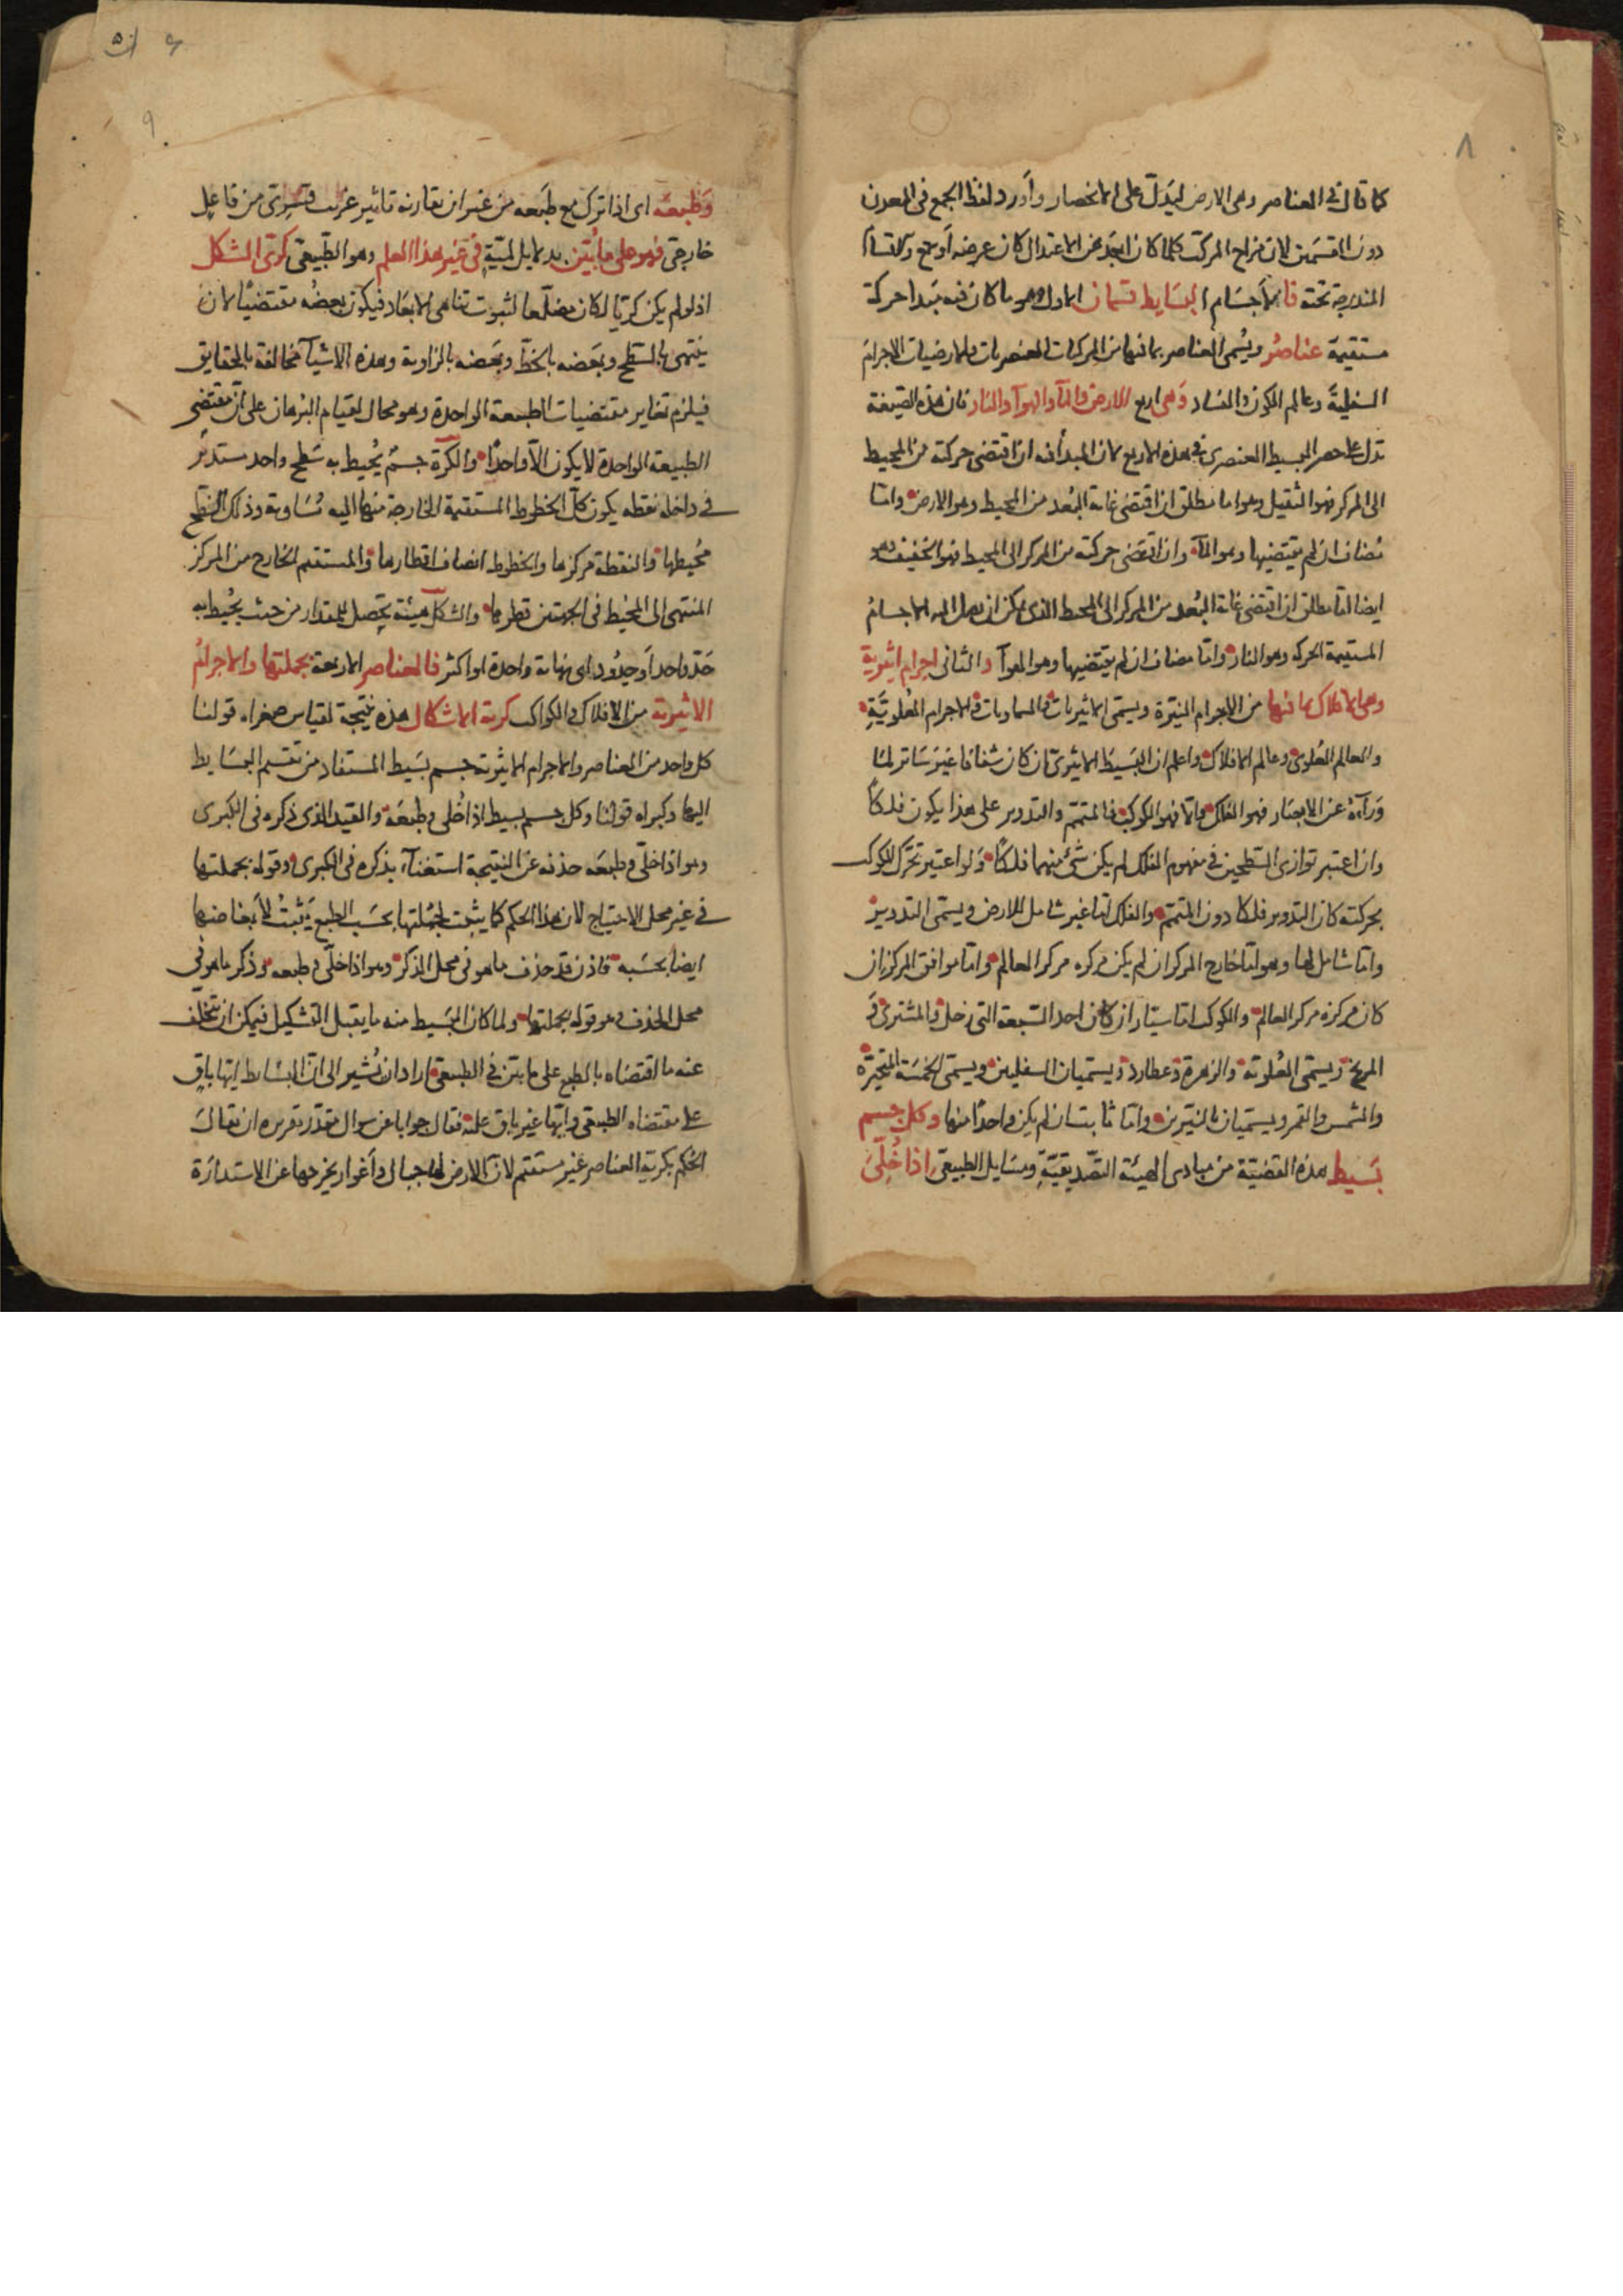 ٨
كما قال فى العناصر وهى الارض ليدل على الانحصار وأورد لفظ الجمع فى المعدن
دون القسمين لان مزاج المركب كلما كان ابعد عن الاعتدال كان عرضه أوسع والاقسام
المندرجة تحته فالأجسام البسايط قسمان الاول وهو ما كان فيه مبدا حركة
مستقيمة عناصر ويسمى العناصر بما فيها من المركبات العنصريات والارضيات الاجرام
السفلية وعالم الكون والفساد وهى اربع الارض والمآ والهوآ والنار فان هذه الصيغة
تدل على حصر البسيط العنصرى فى هذه الاربع لان المبدأ فيه ان اقتضى حركته من المحيط
الى المركز فهو الثقيل وهو اما مطلق ان اقتضى غاية البعد من المحيط وهو الارض واما
مضاف ان لم يقتضيها وهو المآ وان اقتضى حركته من المركز الى المحيط فهو الخفيف وهو
ايضا اما مطلق ان اقتضى غاية البعد من المركز الى المحيط الذى يمكن ان يصل اليه الاجسام
المستقيمة الحركة وهو النار واما مضاف ان لم يقتضيها وهو الهوآ والثانى اجرام اثيرية
وهى الافلاك بما فيها من الاجرام النيرة ويسمى الاثيريات والسماويات والاجرام العلوية
والعالم العلوى وعالم الافلاك واعلم ان البسيط الاثيرى ان كان شفافا غير ساتر لما
ورآءه عن الابصار فهو الفلك والا فهو الكوكب فالمتمم والتدوير على هذا يكون فلكا
وان اعتبر توازى السطحين فى مفهوم الفلك لم يكن شئ منهما فلكا ولو اعتبر تحرك الكوكب
بحركته كان التدوير فلكا دون المتمم والفلك اما غير شامل للارض ويسمى التدوير
واما شامل لها وهو اما خارج المركز ان لم يكن مركزه مركز العالم واما موافق المركز ان
كان مركزه مركز العالم والكوكب اما سيار ان كان احد السبعة التى زحل والمشترى و
المريخ ويسمى العلوية والزهرة وعطارد ويسميان السفليين ويسمى الخمسة المتحيرة
والشمس والقمر ويسميان بالنيرين واما ثابت ان لم يكن واحدا منها وكل جسم
بسيط هذه القضية من مبادى الهيئة التصديقية ومسايل الطبيعى اذا خلى
٩
وطبعه اى اذا ترك مع طبعه من غير ان يقارنه تاثير غريب قسرى من فاعل
خارجى فهو على ما بين بدلايل لمية فى غير هذا العلم وهو الطبيعى كرى الشكل
اذ لو لم يكن كريا لكان مضلعا لثبوت تناهى الابعاد فيكون بعضه مقتضيا لان
ينتهى بالسطح وبعضه بالخط وبعضه بالزاوية وهذه الاشيآ مخالفة بالحقايق
فيلزم تغاير مقتضيات الطبيعة الواحدة وهو محال لقيام البرهان على ان مقتضى
الطبيعة الواحدة لا يكون الا واحدا والكرة جسم يحيط به سطح واحد مستدير
فى داخله نقطة يكون كل الخطوط المستقيمة الخارجة منها اليه متساوية وذلك السطح
محيطها والنقطة مركزها والخطوط انصاف اقطارها والمستقيم الخارج من المركز
المنتهى الى المحيط فى الجهتين قطرها والشكل هيئة يحصل للمقدار من حيث يحيط به
حد واحد أو حدود اى نهاية واحدة او اكثر فالعناصر الاربعة بجملتها والاجرام
الاثيرية من الافلاك والكواكب كرية الاشكال هذه نتيجة لقياس صغراه قولنا
كل واحد من العناصر والاجرام الاثيرية جسم بسيط المستفاد من تقسيم البسايط
اليها وكبراه قولنا وكل جسم بسيط اذا خلى وطبعه والقيد الذى ذكره فى الكبرى
وهو اذا خلى وطبعه حذفه عن النتيجة استغنآء بذكره فى الكبرى وقوله بجملتها
فى غير محل الاحتياج لان هذا الحكم كما يثبت لجملتها بحسب الطبع يثبت لأبعاضها
ايضا بحسبه فاذن قد حذف ما هو فى محل الذكر وهو اذا خلى وطبعه وذكر ما هو فى
محل الحذف وهو قوله بجملتها ولما كان البسيط منه ما يقبل التشكيل فيمكن ان يتخلف
عنه ما اقتضاه بالطبع على ما بين فى الطبيعى اراد ان يشير الى ان البسايط ايها باق
على مقتضاه الطبيعى وايها غير باق عليه فقال جوابا عن سوال مقدر تقريره ان يقال
الحكم بكرية العناصر غير مستقيم لان الارض لها جبال وأغوار يخرجها عن الاستدارة